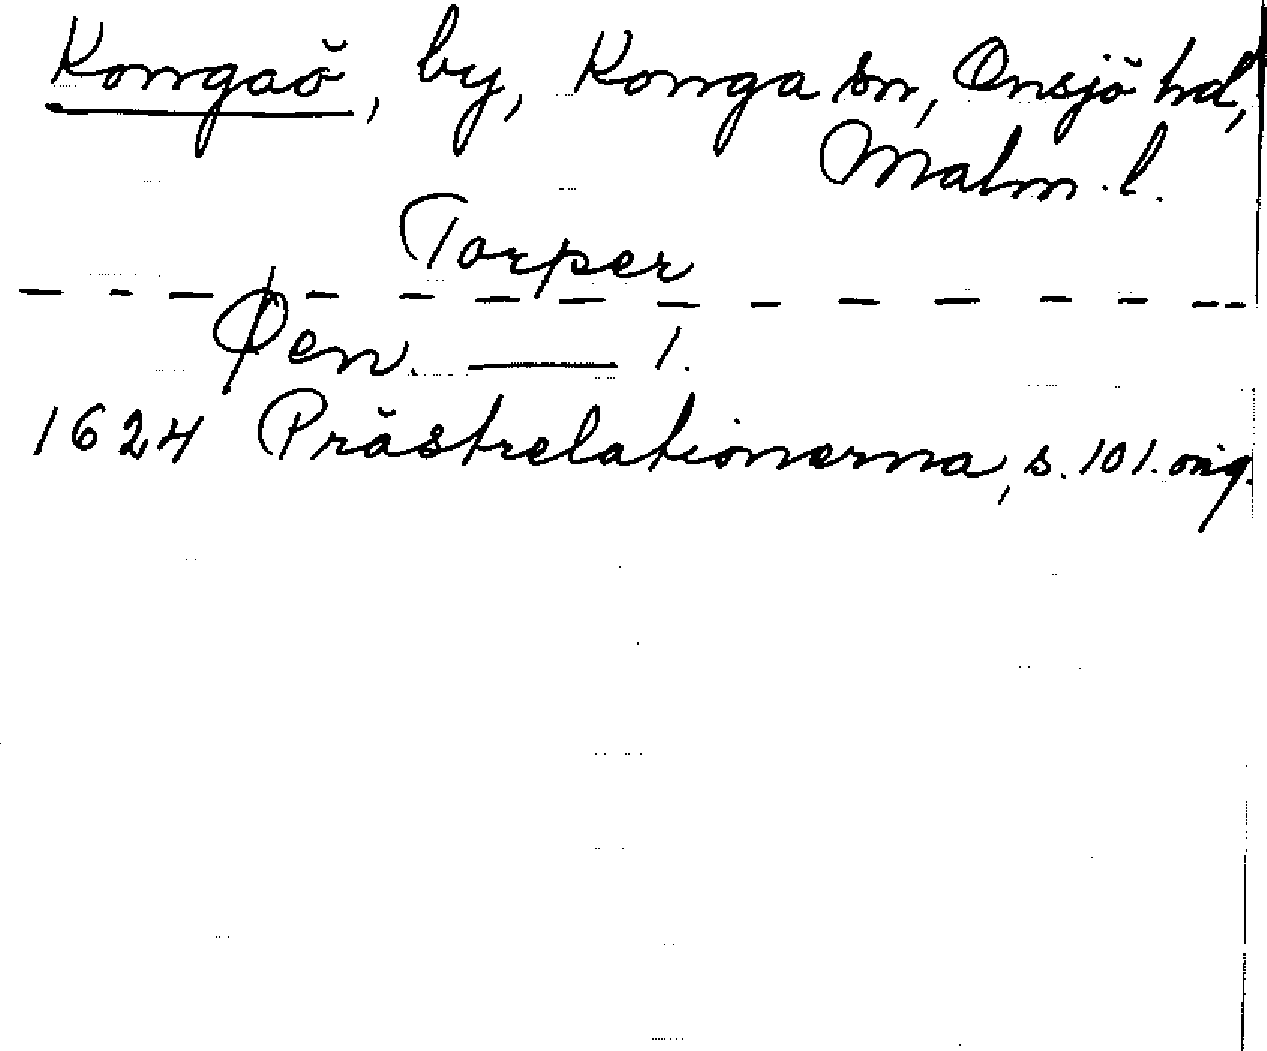 Kongaö, by, Konga sn, Onsjö hd,
Malm. l.
Torper
— - — - — - — - — - — - — - -
Øen. — 1.
1624 Prästrelationerna, s. 101. orig.